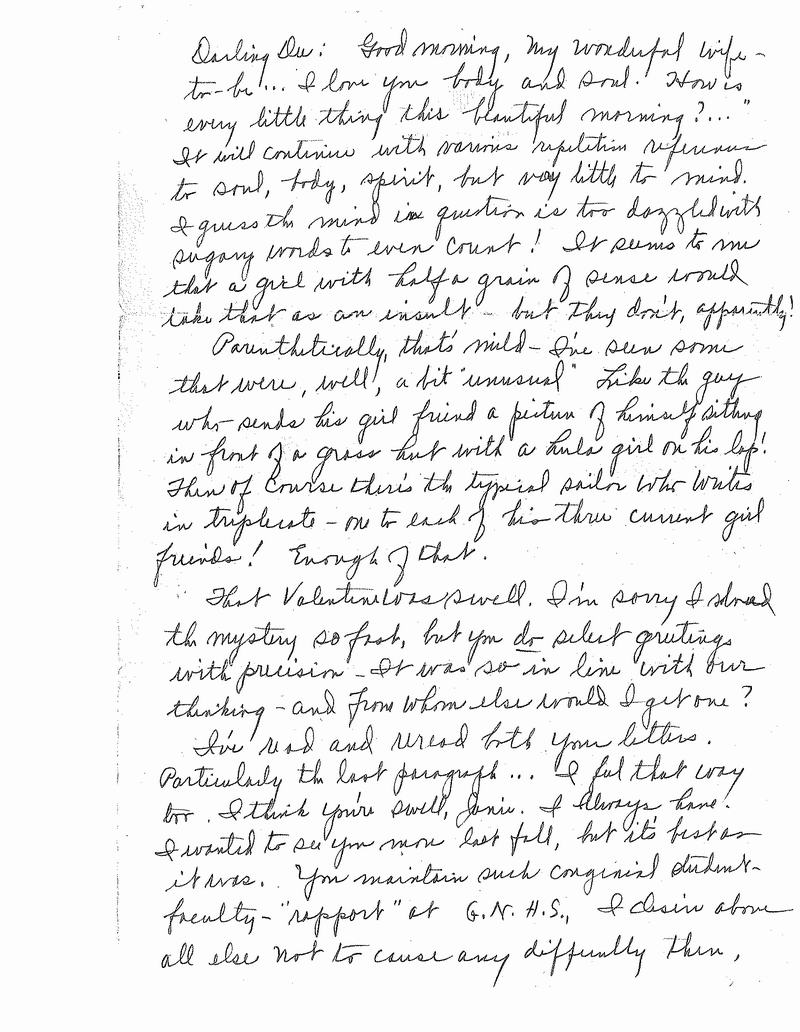 Darling Dee: Good morning, my wonderful wife-
to-be... I love you body and soul. How is
every little thing this beautiful morning?..."
It will continue with various repetition references
to soul, body, spirit, but very little to mind.
I guess the mind in question is too dazzled with
sugary words to even count! It seems to me
that a girl with half a grain of sense would
take that as an insult - but they don't, apparently!
Parenthetically, that's mild - I've seen some
that were, well, a bit "unusual" Like the guy
who sends his girl friend a picture of himself sitting
in front of a grass hut with a hula girl on his lap!
Then of course there's the typical sailor who writes
in triplicate - one to each of his three current girl
friends! Enough of that.
That Valentine was swell. I'm sorry I solved
the mystery so fast, but you do select greetings
with precision - It was so in line with our
thinking - and from whom else would I get one?
I've read and reread both your letters.
Particularly the last paragraph... I feel that way
too. I think you're swell, Janie. I always have.
I wanted to see you more last fall, but it's best as
it was. You maintain such congenial student-
faculty - "rapport" at G.N.H.S., I desire above
all else not to cause any difficulty then,